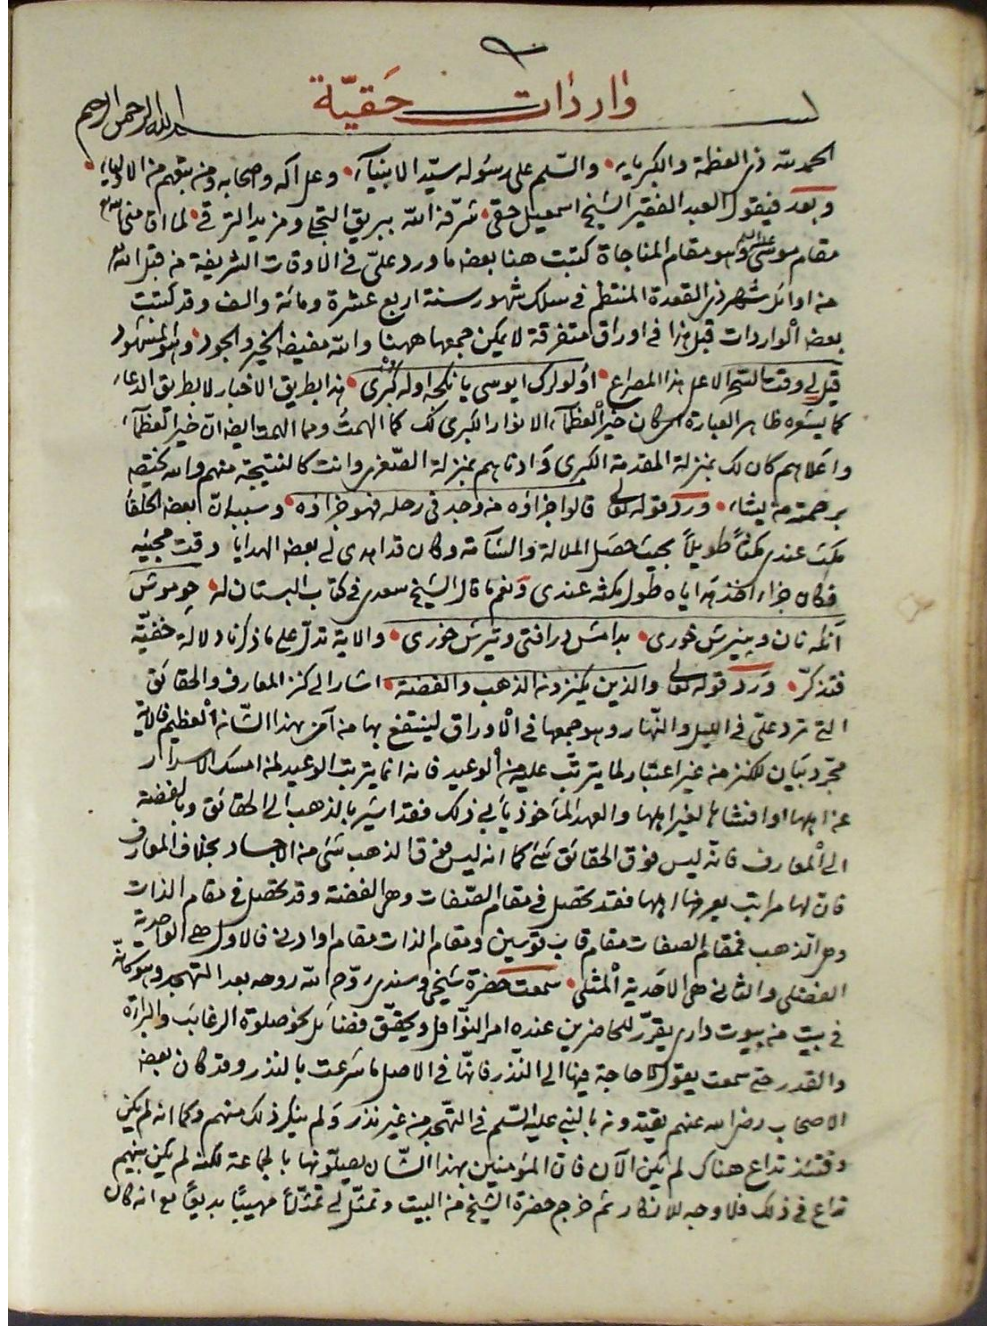 واردات حقيّة
بسم الله الرحمن الرحيم
الحمد لله ذى العظمة والكبرياء والسّلم على رسوله سيّد الانبياء وعلى آله وصحابه ومن تبعهم من الاولياء
وبعد فيقول العبد الفقير الشيخ اسمعيل حقى شرّفه الله ببريق التجلى ومزيد الترقى لما اقامنى الله
مقام موسى عليه السلم وهو مقام المناجاة كتبت هنا بعض ما ورد علىّ فى الاوقات الشريفة من قبل الله
من اوائل شهر ذى القعدة المنتظم فى سلك شهور سنة اربع عشرة ومائة والف وقد كتبت
بعض الواردات قبل هذا فى اوراق متفرقة لا يمكن جمعها ههنا والله مفيض الخير والجود وهو المشهود
قيل لى وقت السّحر الاعلى هذا المصراع اولولرك ايوسى يا نكحه اوله كبرى هذا بطريق الاخبار لا بطريق الدعاء
كما يشوه ظاهر العبارة اى كان خير العظماء الانوار الكبرى لك كما الهمتُ ومما الهمت ايضا انّ خير العظماء
واعلاهم كان لك بمنزلة المقدمة الكبرى وادناهم بمنزلة الصّغرى وانت كالنتيجة منهم والله يختص
برحمته من يشاء ورد قوله تعالى قالوا جزاؤه من وجد فى رحله فهو جزاؤه وسببه انّ بعض الخلفا
مكث عندى مكثاً طويلاً بحيث حصل الملالة والسّآمة وكان قد اهدى لى بعض الهدايا وقت مجيئه
فكان جزاء اخذ هداياه طول مكثه عندى ونعم ما قال الشيخ سعدى فى كتاب البستان له چو موش
آنكه نان وپنيرش خورى بدامش درافتى وتيرش خورى والاية تدلّ على ما ذكرنا دلالة خفيّة
فتذكّر ورد قوله تعالى والذين يكنزون الذهب والفضة اشار الى كنز المعارف والحقائق
التى ترد علىّ فى الليل والنّهار وهو جمعها فى الاوراق لينتفع بها من آمن بهذا الشّان العظيم فالاية
مجرّد بيان للكنز من غير اعتبار لما يترتّب عليه من الوعيد فانه انما يترتب الوعيد لمن امسك الاسرار
عن اهلها او افشاها لغير اهلها والعهد المأخوذ يأبى ذلك فقد اشير بالذهب الى الحقائق وبالفضة
الى المعارف فانّه ليس فوق الحقائق شئ كما انه ليس فوق الذهب شئ من الاجساد بخلاف المعارف
فان لها مراتب يعرفها اهلها فقد تحصل فى مقام الصّفات وهى الفضة وقد تحصل فى مقام الذات
وهى الذهب فمقام الصفات مقام قاب قوسين ومقام الذات مقام او ادنى فالاول هى الواحدية
الفضلى والثانى هى الاحدية المثلى سمعت حضرة شيخى وسندى روّح الله روحه بعد التهجد وهو كانّه
فى بيت من بيوت دارى يقرّر للحاضرين عنده امر النّوافل ويحقّق فضائل نحو صلوة الرغائب والبراءة
والقدر حتى سمعت يقول لا حاجة فيها الى النّذر فانّها فى الاصل ما شرعت بالنذر وقد كان بعض
الاصحاب رضى الله عنهم يقتدونه بالنبى عليه السّلم فى التهجد من غير نذر ولم ينكر ذلك منهم وكما انه لم يكن
وقتئذ تداع هناك لم يكن الآن فانّ المؤمنين بهذا الشّان يصلّونها بالجماعة لكنه لم يكن بينهم
تداع فى ذلك فلا وجه للانكار ثم خرج حضرة الشيخ من البيت وتمثّل لى تمثّلاً مهيبًا بديعًا مع انه كان